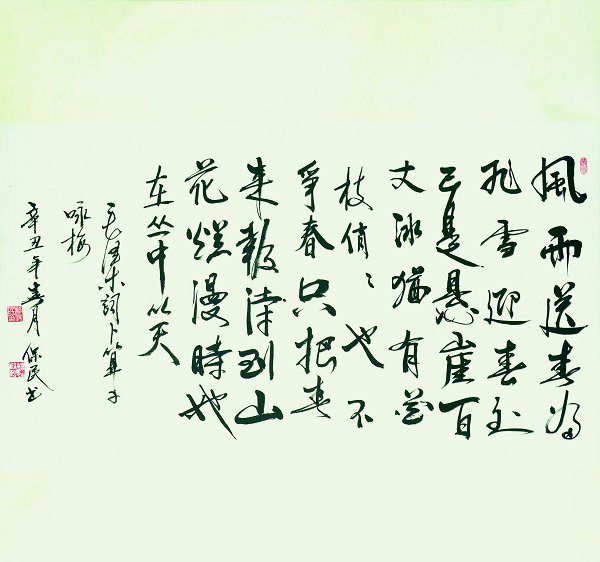 風雨送春归
飛雪迎春到
已是悬崖百
丈冰猶有花
枝俏々也不
爭春只把春
來報待到山
花爛漫時她
在丛中笑
毛泽东詞卜算子
咏梅
辛丑年春月保民书